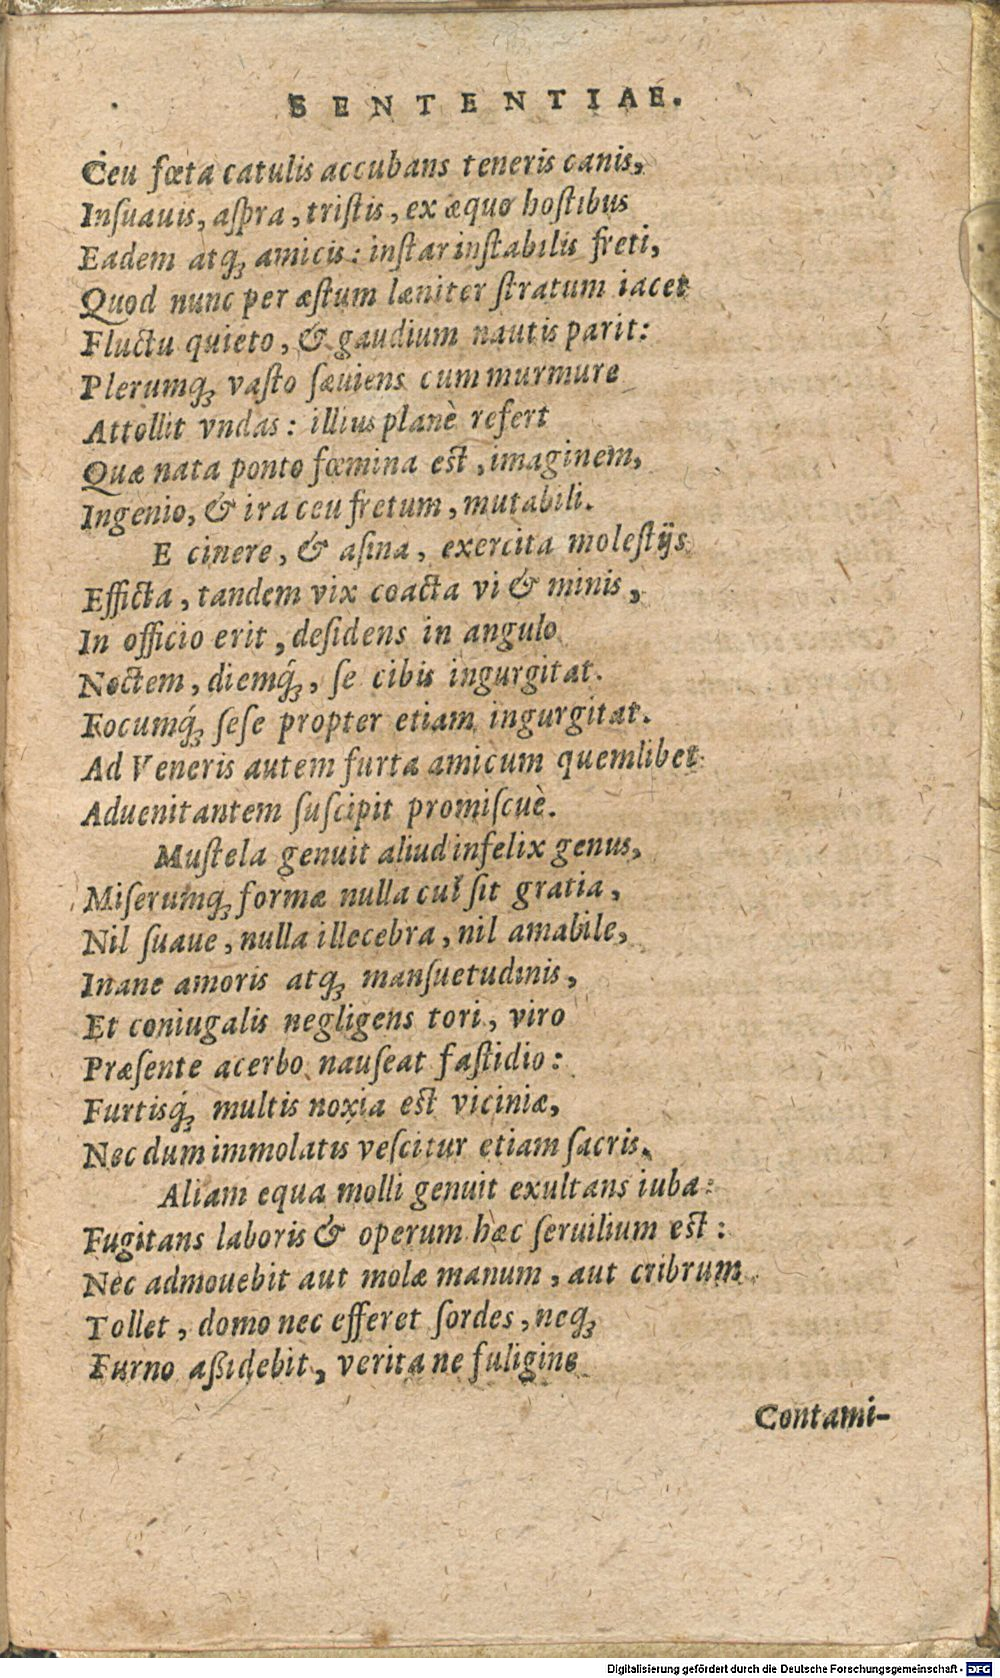 SENTENTIAE.
Ceu fœta catulis accubans teneris canis,
Inſuauis, aſpra, triſtis, ex æquo hoſtibus
Eadem atq́ꝫ amicis: inſtar inſtabilis freti,
Quod nunc per æſtum læniter ſtratum iacet
Fluctu quieto, & gaudium nautis parit:
Plerumqꝫ vaſto ſæuiens cum murmure
Attollit vndas: illius planè refert
Quæ nata ponto fœmina eſt, imaginem,
Ingenio, & ira ceu fretum, mutabili.
E cinere, & aſina, exercita moleſtijs
Efficta, tandem vix coacta vi & minis,
In officio erit, deſidens in angulo
Noctem, diemq́ꝫ, ſe cibis ingurgitat.
Focumq́ꝫ ſeſe propter etiam ingurgitat.
Ad Veneris autem furta amicum quemlibet
Aduenitantem ſuſcipit promiſcuè.
Muſtela genuit aliud infelix genus,
Miſerumqꝫ formæ nulla cui ſit gratia,
Nil ſuaue, nulla illecebra, nil amabile,
Inane amoris atqꝫ manſuetudinis,
Et coniugalis negligens tori, viro
Præſente acerbo nauſeat faſtidio:
Furtisq́ꝫ multis noxia eſt viciniæ,
Nec dum immolatis veſcitur etiam ſacris.
Aliam equa molli genuit exultans iuba:
Fugitans laboris & operum hæc ſeruilium eſt:
Nec admouebit aut molæ manum, aut cribrum
Tollet, domo nec efferet ſordes, neqꝫ
Furno aßidebit, verita ne fuligine
Contami-
Digitalisierung gefördert durch die Deutsche Forschungsgemeinschaft - DFG